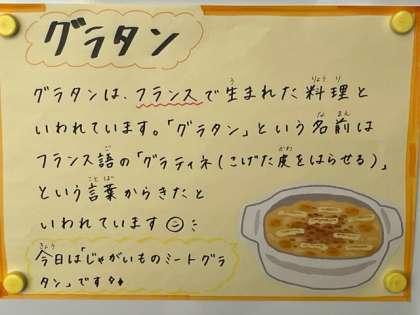 グラタン
グラタンは、フランスで生まれた料理と
いわれています。「グラタン」という名前は
フランス語の「グラティネ(こげた皮をはらせる)」
という言葉からきたと
いわれています
今日は「じゃがいものミートグラ
タン」です